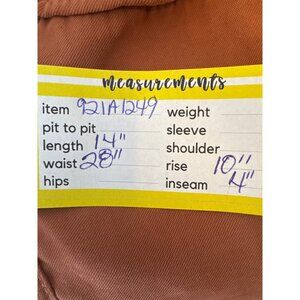 measurements
item 921A1249
pit to pit
length 14"
waist 28"
hips
weight
sleeve
shoulder
rise 10"
inseam 4"